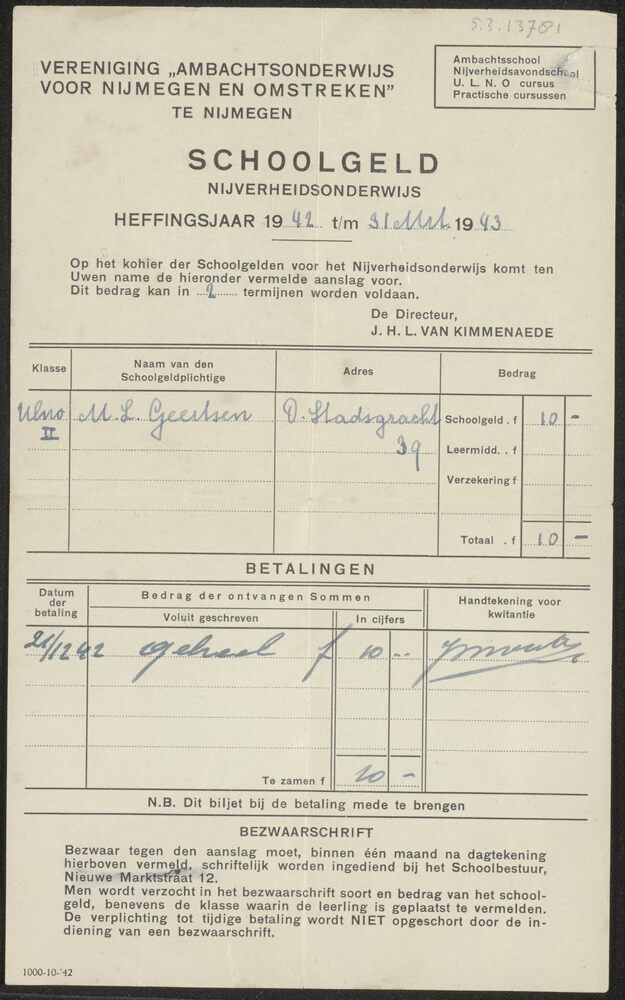 S.3.13781
VERENIGING „AMBACHTSONDERWIJS
VOOR NIJMEGEN EN OMSTREKEN”
TE NIJMEGEN
Ambachtsschool
Nijverheidsavondschool
U. L. N. O cursus
Practische cursussen
SCHOOLGELD
NIJVERHEIDSONDERWIJS
HEFFINGSJAAR 19 42 t/m 31 Mrt. 19 43
Op het kohier der Schoolgelden voor het Nijverheidsonderwijs komt ten
Uwen name de hieronder vermelde aanslag voor.
Dit bedrag kan in 2 termijnen worden voldaan.
De Directeur,
J. H. L. VAN KIMMENAEDE
Klasse
Naam van den
Schoolgeldplichtige
Adres
Bedrag
Ulno M. L. Geertsen O. Stadsgracht Schoolgeld . f 10 -
II 39 Leermidd. . f
Verzekering f
Totaal . f 10 -
BETALINGEN
Datum
der
betaling
Bedrag der ontvangen Sommen
Voluit geschreven
In cijfers
Handtekening voor
kwitantie
21/12 42 geheel f 10 --
Te zamen f 10 -
N.B. Dit biljet bij de betaling mede te brengen
BEZWAARSCHRIFT
Bezwaar tegen den aanslag moet, binnen één maand na dagtekening
hierboven vermeld, schriftelijk worden ingediend bij het Schoolbestuur,
Nieuwe Marktstraat 12.
Men wordt verzocht in het bezwaarschrift soort en bedrag van het school-
geld, benevens de klasse waarin de leerling is geplaatst te vermelden.
De verplichting tot tijdige betaling wordt NIET opgeschort door de in-
diening van een bezwaarschrift.
1000-10-'42